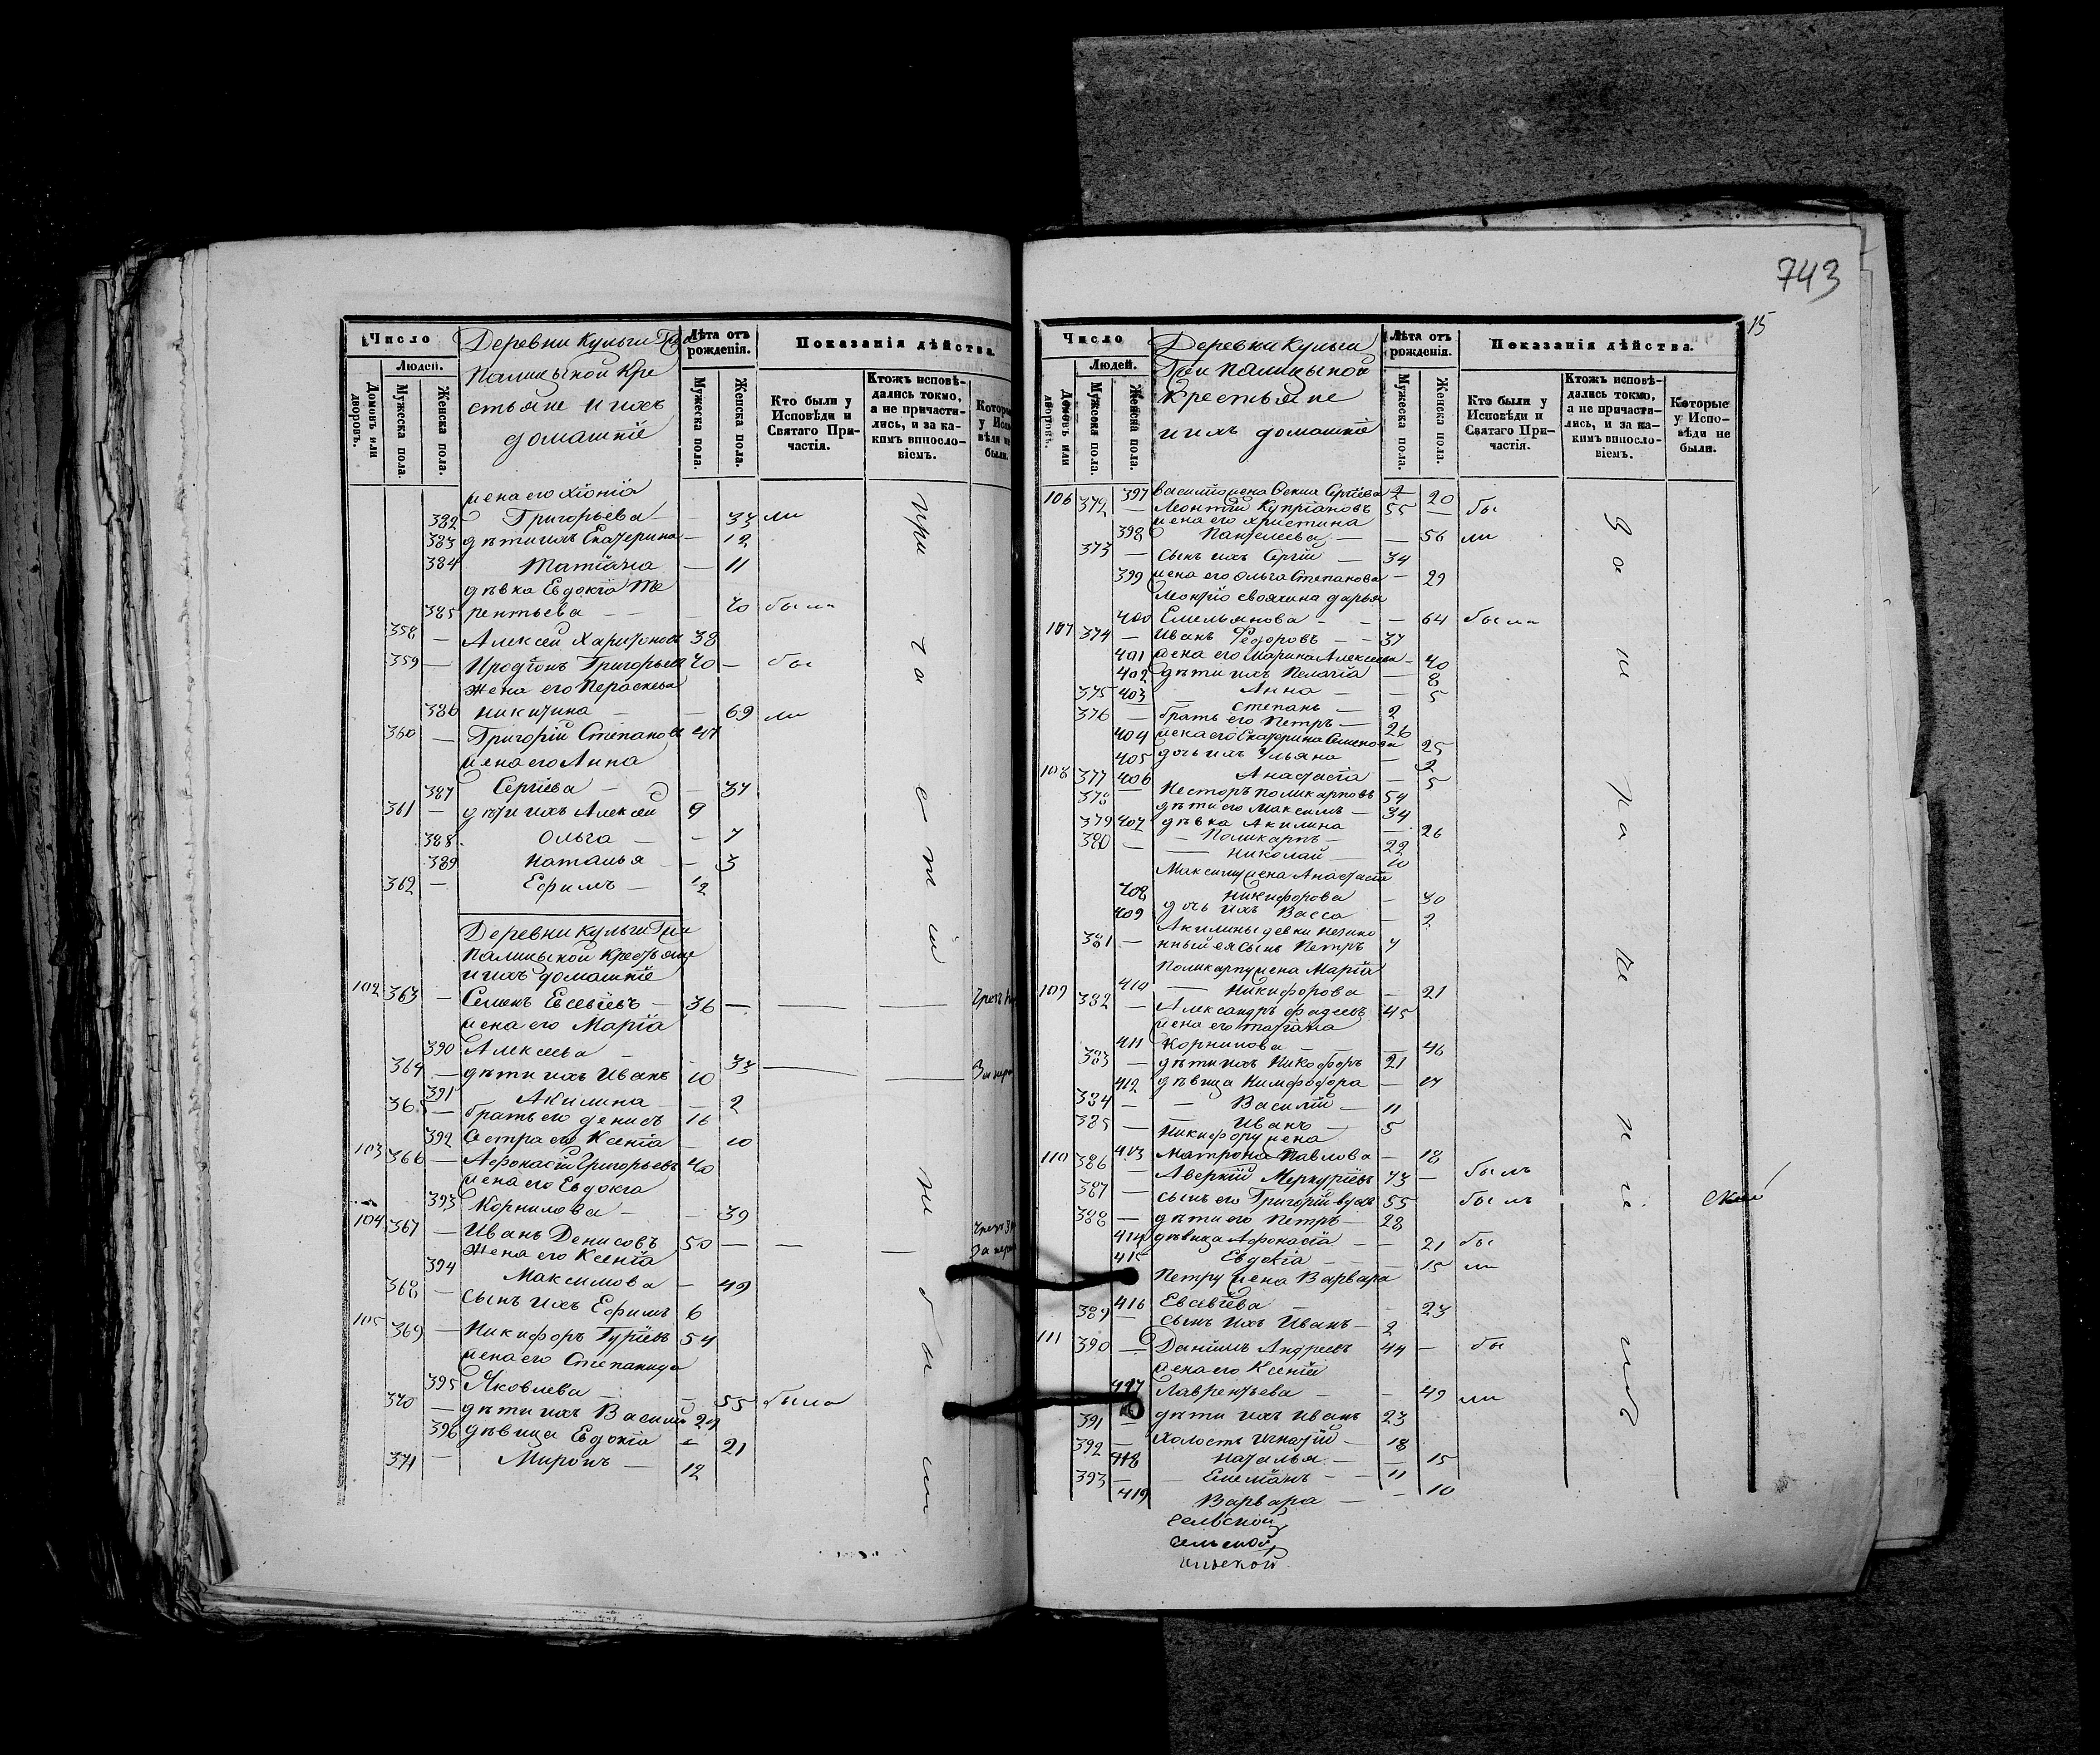 Число
Деревни Кульги Гри
Палицыной Кре
стьяне и ихъ
домашніе
Лѣта отъ рожденія.
Показанія дѣйства.
Людей.
Домовъ или дворовъ.
Мужеска пола.
Женска пола.
Мужеска пола.
Женска пола.
Кто были у Исповѣди и Святаго Причастія.
Ктожъ исповѣдались токмо, а не причастились, и за какимъ винословіемъ.
жена его Хіонія
382 Григорьева — — 33 ли
383 дѣти ихъ Екатерина — 12
384 Татіана — 11
дѣвка Евдокія Те
385 рентьева — — 40 была
358 — Алексей Харитоновъ 38
359 — Иродіонъ Григорьевъ 70 — бы
жена его Параскева
386 Никитина — — 69 ли
360 — Григорій Степановъ 47
жена его Анна
387 Сергіева — — 37
361 — дѣти ихъ Алексей 9
388 Ольга — — 7
389 Наталья — — 3
362 — Ефимъ — 1/2
Деревни Кульги Гри
Палицыной Крестьяне
и ихъ домашніе
102 363 — Семенъ Евсевіевъ — 36 — — —
жена его Марія
390 Алексеева — — 33 — —
364 — дѣти ихъ Иванъ 10
391 Акилина — — 2
365 — братъ его Денисъ 16
392 Сестра его Ксенія — 10
103 366 — Афонасій Григорьевъ 40
жена его Евдокія
393 Корнилова — — 39
104 367 — Иванъ Денисовъ 50 — — —
жена его Ксенія
394 Максимова — 49
368 — сынъ ихъ Ефимъ 6
105 369 — Никифоръ Гурьевъ 54
жена его Степанида
395 Яковлева — — 55 была
370 — дѣти ихъ Василій 24
396 дѣвица Евдокія — 21
371 — Миронъ — 12
743
15
Число
Деревни Кульги
Гри Палицыной
Крестьяне
и ихъ домашніе
Лѣта отъ рожденія.
Показанія дѣйства.
Людей.
Домовъ или дворовъ.
Мужеска пола.
Женска пола.
Мужеска пола.
Женска пола.
Кто были у Исповѣди и Святаго Причастія.
Ктожъ исповѣдались токмо, а не причастились, и за какимъ винословіемъ.
Которые у Исповѣди не были.
397 Василію жена Сергіева 20
106 372 — Леонтій Купріановъ 55 — бы
жена его Христина
398 Пантелеева — — 56 ли
373 — сынъ ихъ Сергій — 34
399 жена его Ольга Степанова — 29
Леонтію своячина Дарья
400 Емельянова — — 64 была
107 374 — Иванъ Федоровъ — — 37
401 жена его Марина Алексеева — 40
402 дѣти ихъ Пелагія — 8
403 Анна — — 5
375 Степанъ — 2
376 — братъ его Петръ — 26
404 жена его Екатерина Семенова 25
405 дочь ихъ Ульяна — 2
406 Анастасія — 5
108 377 — Несторъ Поликарповъ 54
378 дѣти его Максимъ — 34
407 дѣвка Акилина — 26
379 — Поликарпъ — 22
380 — Николай — 10
Максиму жена Анастасія
408 Никифорова — 30
409 дочь ихъ Васса — 2
Акилины девки незако
381 — нный ея сынъ Петръ 7
Поликарпу жена Марія
410 Никифорова — 21
109 382 — Александръ Фадеевъ 45
жена его Татіана
411 Корнилова — — 46
383 — дѣти ихъ Никифоръ 21
412 дѣвица Нимфодора — 17
384 — Василій — 11
385 — Иванъ — 5
Никифору жена
413 Матрона Павлова — 18
110 386 — Аверкій Меркуріевъ 73 — былъ
387 — сынъ его Григорій вдовъ 55 былъ
388 — дѣти его Петръ — 28
414 дѣвица Афонасія — — 21 бы
415 Евдокія — — 15 ли
Петру жена Варвара
416 Евсевіева — — 23
389 — сынъ ихъ Иванъ — 2
111 390 — Даніилъ Андреевъ 44 — бы
жена его Ксенія
417 Лаврентьева — — 49 ли
391 — дѣти ихъ Иванъ 23
392 — холостъ Игнатій — 18
418 Наталья — — 15
393 — Емеліанъ — — 11
419 Варвара — — 10
Сельской
Сельской